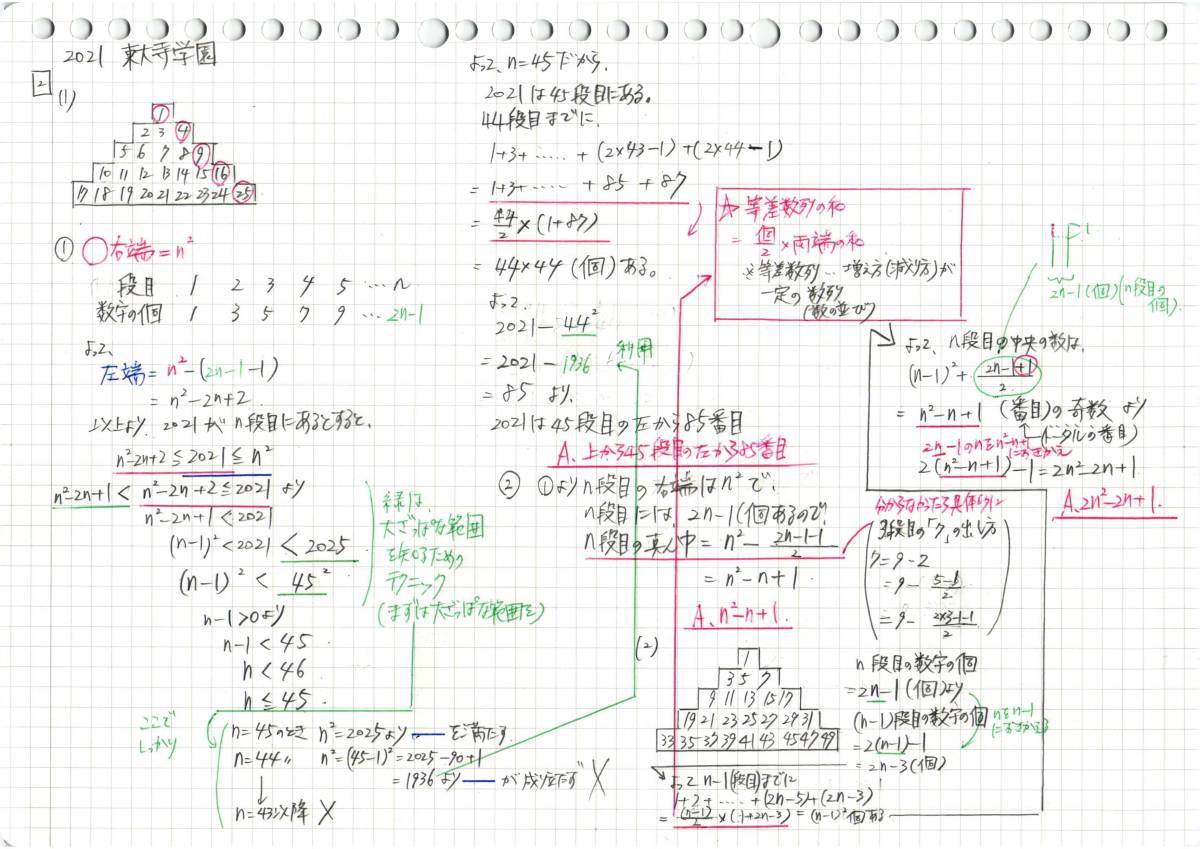 2021 東大寺学園
2
(1)
1
2 3 4
5 6 7 8 9
10 11 12 13 14 15 16
17 18 19 20 21 22 23 24 25
① ○右端=n²
段目 1 2 3 4 5 … n
数字の個 1 3 5 7 9 … 2n-1
よって、
左端=n²-(2n-1-1)
=n²-2n+2.
以上より、2021がn段目にあるとすると、
n²-2n+2≦2021≦n²
n²-2n+1<n²-2n+2≦2021 より
n²-2n+1<2021
(n-1)²<2021<2025
(n-1)²<45²
n-1>0より
n-1<45
n<46
n≦45
緑は、
大ざっぱな範囲
を知るための
テクニック
(まずは大ざっぱな範囲を)
ここで
しっかり
n=45のとき n²=2025より ― を満たす
n=44〃 n²=(45-1)²=2025-90+1
=1936より ― が成り立たず ×
↓
n=43以降 ×
よって、n=45だから、
2021は45段目にある。
44段目までに、
1+3+……+(2×43-1)+(2×44-1)
=1+3+……+85+87
=44/2×(1+87)
=44×44(個)ある。
よって、
2021-44²
=2021-1936 利用
=85 より、
2021は45段目の左から85番目
A、上から45段目の左から85番目
② ①よりn段目の右端はn²で、
n段目には、2n-1(個)あるので、
n段目の真ん中=n²-(2n-1-1)/2
=n²-n+1.
A、n²-n+1.
(2)
1
3 5 7
9 11 13 15 17
19 21 23 25 27 29 31
33 35 37 39 41 43 45 47 49
よってn-1(段目)までに
1+3+……+(2n-5)+(2n-3)
=(n-1)/2×(1+2n-3)=(n-1)²個ある
☆ 等差数列の和
=個/2×両端の和
※等差数列…増え方(減り方)が
一定の数列
(数の並び)
2n-1(個)(n段目の個)
よって、n段目の中央の数は、
(n-1)²+(2n-1+1)/2
=n²-n+1 (番目)の奇数 より
(トータルの番目)
2n-1のnをn²-n+1におきかえ
2(n²-n+1)-1=2n²-2n+1
A、2n²-2n+1.
分からなかったら具体的に
3段目の「7」の出し方
7=9-2
=9-(5-1)/2
=9-(2×3-1-1)/2
n段目の数字の個
=2n-1(個)より
(n-1)段目の数字の個
=2(n-1)-1
=2n-3(個)
nをn-1
におきかえる